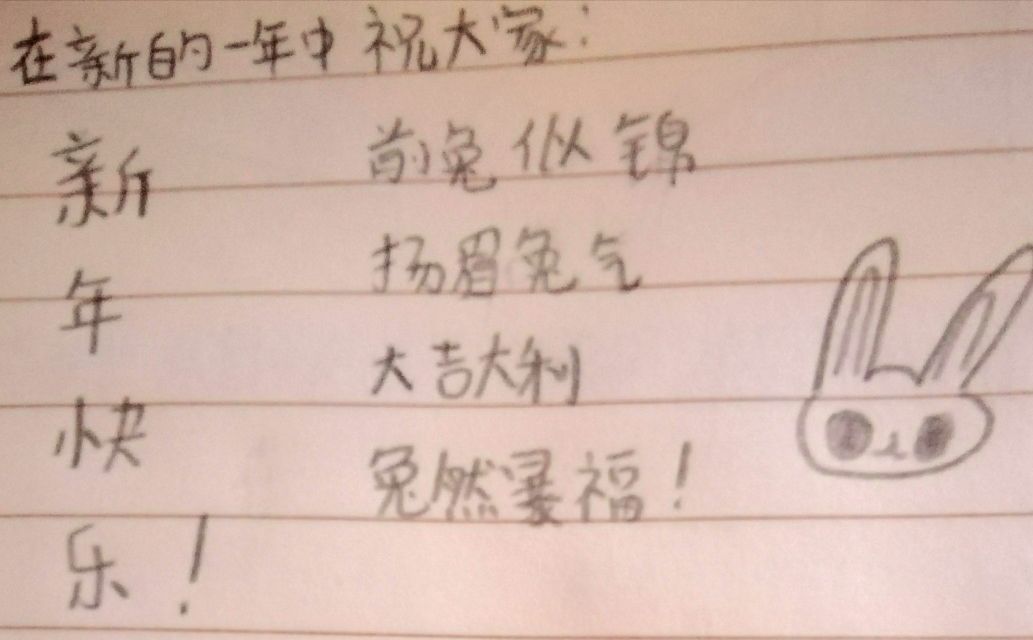 在新的一年中 祝大家:
新年快乐!
前兔似锦
扬眉兔气
大吉大利
兔然暴福!